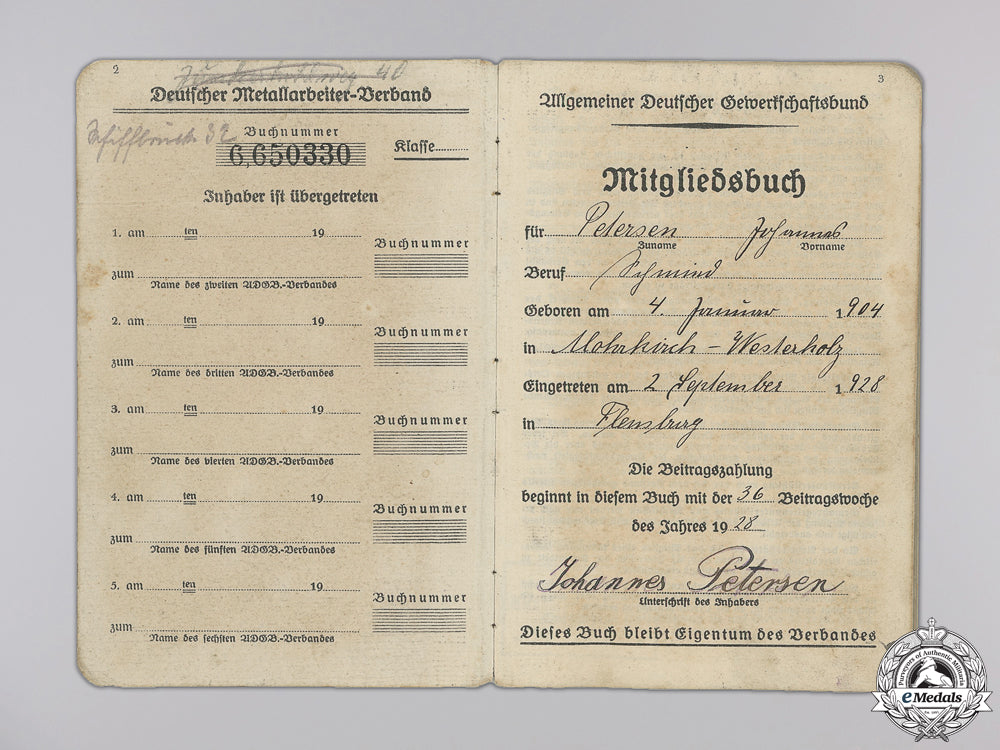 2
40
Deutscher Metallarbeiter-Verband
Schiffbrück 32
Buchnummer
6,650330
Klasse
Inhaber ist übergetreten
1. am ten 19
Buchnummer
zum
Name des zweiten ADGB.-Verbandes
2. am ten 19
Buchnummer
zum
Name des dritten ADGB.-Verbandes
3. am ten 19
Buchnummer
zum
Name des vierten ADGB.-Verbandes
4. am ten 19
Buchnummer
zum
Name des fünften ADGB.-Verbandes
5. am ten 19
Buchnummer
zum
Name des sechsten ADGB.-Verbandes
3
Allgemeiner Deutscher Gewerkschaftsbund
Mitgliedsbuch
für Petersen Johannes
Zuname Vorname
Beruf Schmied
Geboren am 4. Januar 1904
in Mohrkirch - Westerholz
Eingetreten am 2 September 1928
in Flensburg
Die Beitragszahlung
beginnt in diesem Buch mit der 36 Beitragswoche
des Jahres 1928
Johannes Petersen
Unterschrift des Inhabers
Dieses Buch bleibt Eigentum des Verbandes
Purveyors of Authentic Militaria
eMedals